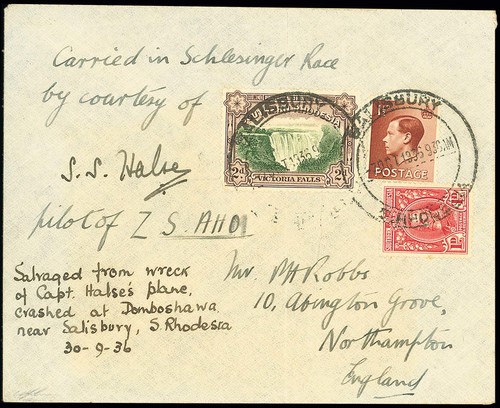 Carried in Schlesinger Race
by courtesy of
S. S. Halse
pilot of Z S. AHO
Salvaged from wreck
of Capt. Halse's plane,
crashed at Domboshawa
near Salisbury, S. Rhodesia
30-9-36
SALISBURY
2d VICTORIA FALLS 2d
SALISBURY
POSTAGE
1D 1D
Mr. Robbs
10, Abington Grove,
Northampton
England